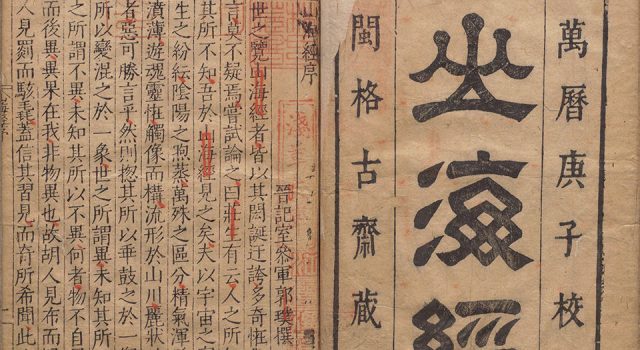 萬曆庚子校
山海經
閩格古齋藏
山海經序
晉記室參軍郭璞撰
世之覽山海經者皆以其閎誕迂誇多奇怪
言莫不疑焉嘗試論之曰莊生有云人之所
其所不知吾於山海經見之矣夫以宇宙之
生之紛紜陰陽之煦蒸萬殊之區分精氣渾
濆薄遊魂靈怪觸像而構流形於山川麗狀
者惡可勝言乎然則揔其所以乖鼓之於一
所以變混之於一象世之所謂異未知其所
之所謂不異未知其所以不異何者物不自
而後異異果在我非物異也故胡人見布而
人見罽而駭毳蓋信其習見而奇所希聞此